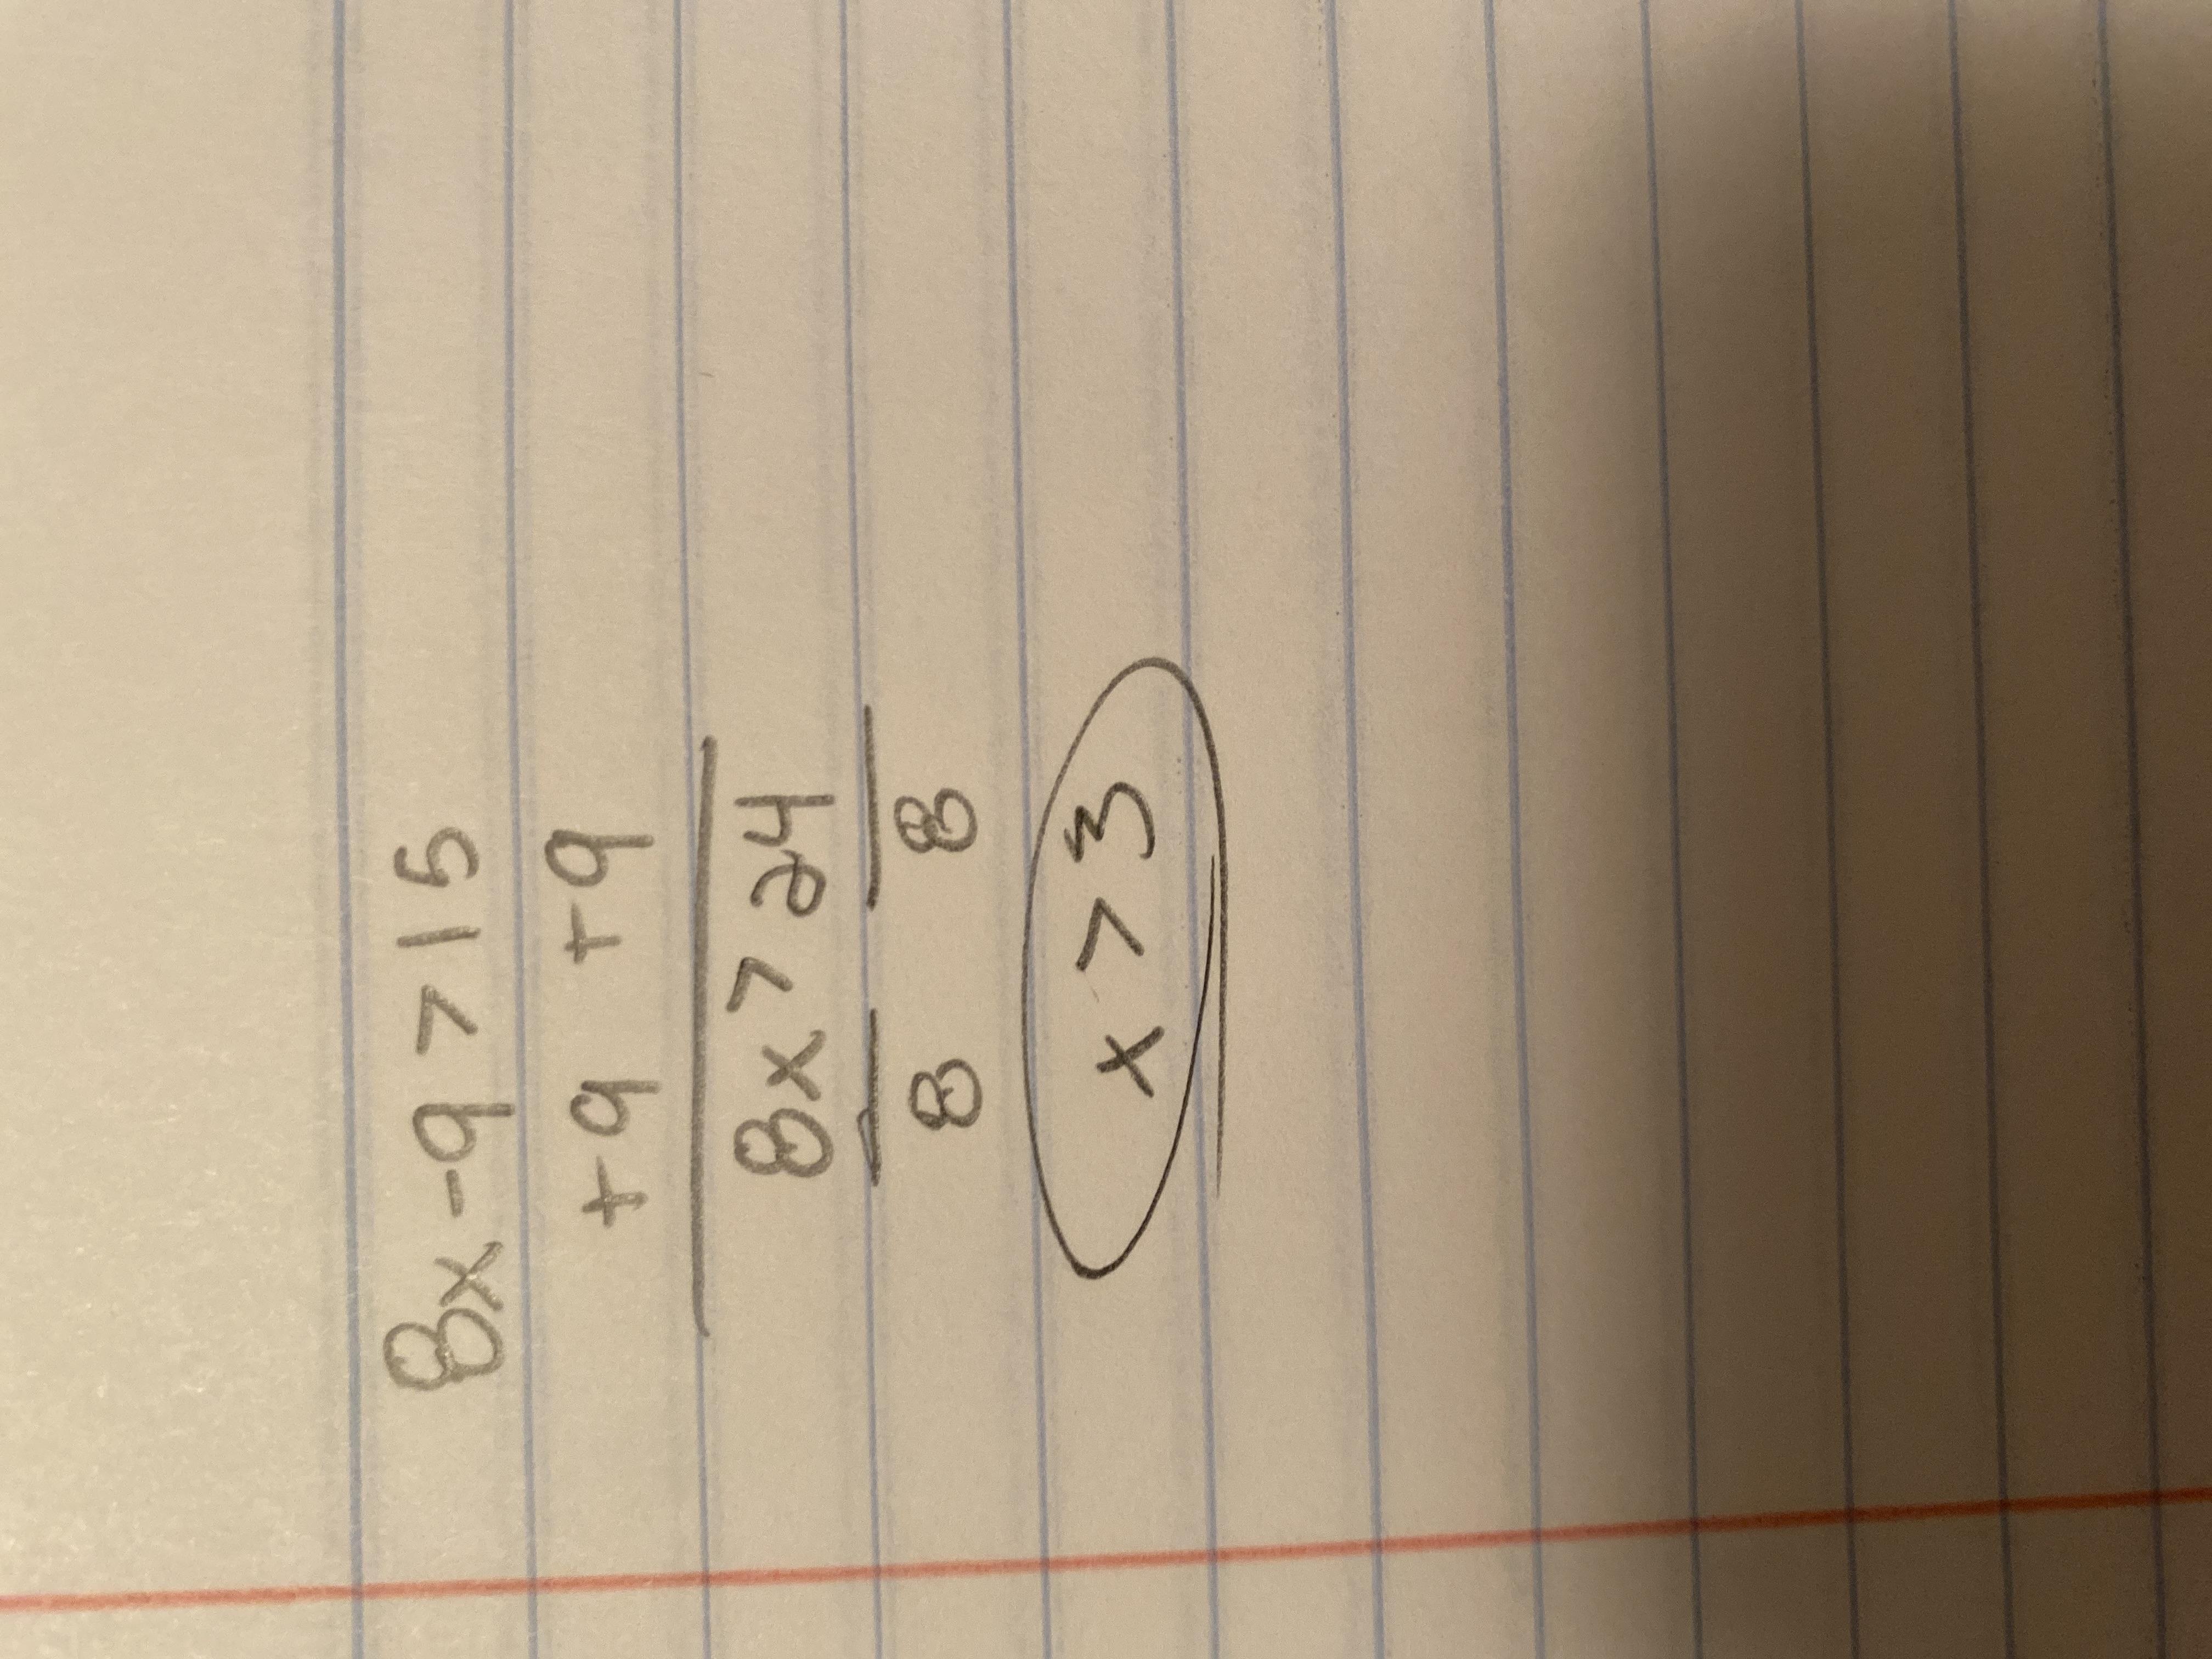 8x - 9 > 15
+9 +9
8x > 24
8 8
x > 3